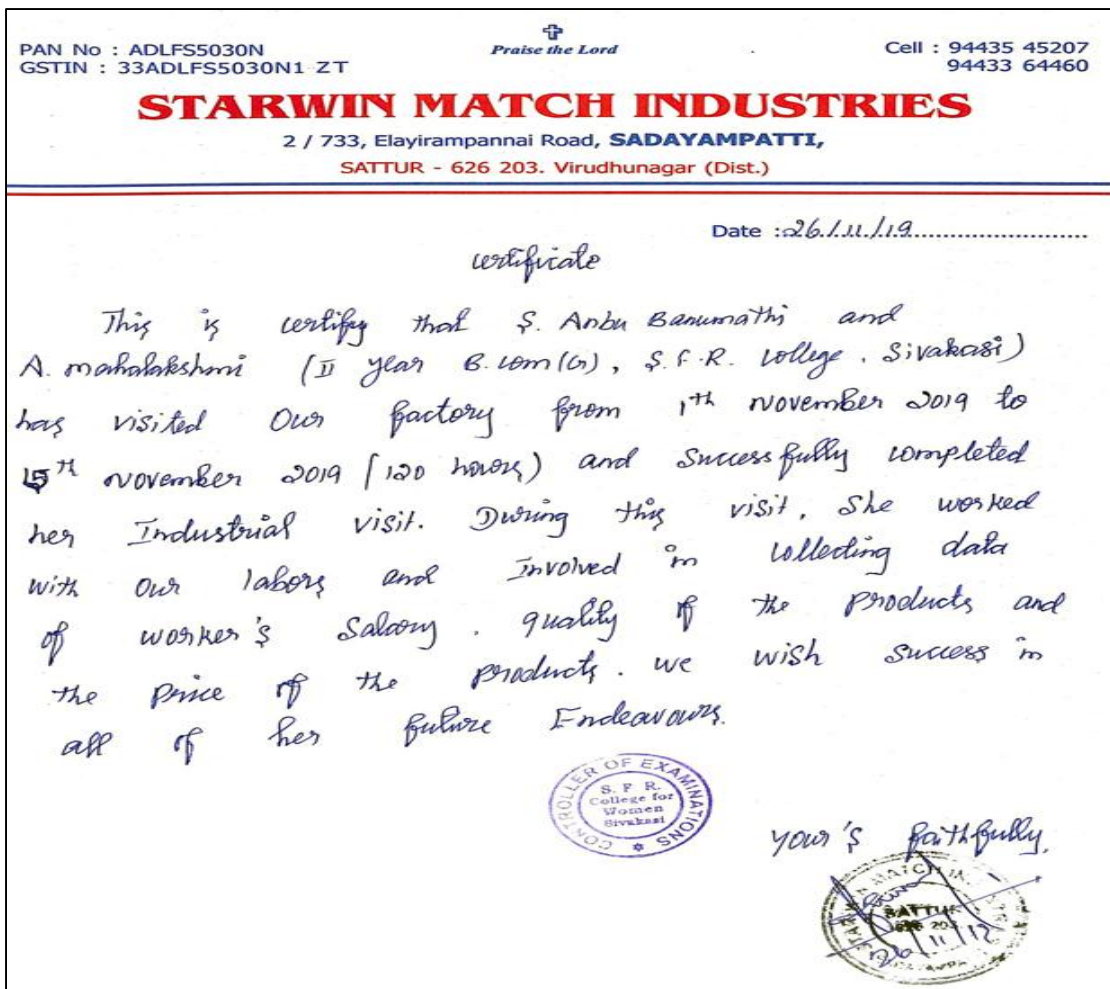 PAN No : ADLFS5030N
GSTIN : 33ADLFS5030N1 ZT
Praise the Lord
Cell : 94435 45207
94433 64460
STARWIN MATCH INDUSTRIES
2 / 733, Elayirampannai Road, SADAYAMPATTI,
SATTUR - 626 203. Virudhunagar (Dist.)
Date : 26/11/19
certificate
This is certify that S. Anbu Banumathi and
A. mahalakshmi (II year B.com(G), S.F.R. college. Sivakasi)
has visited Our factory from 1th November 2019 to
15th November 2019 (120 hours) and Successfully completed
her Industrial visit. During this visit, She worked
with our labors and Involved in collecting data
of worker's Salary. quality of the products and
the price of the products. we wish success in
all of her future Endeavours.
CONTROLLER OF EXAMINATIONS
S. F. R.
College for
Women
Sivakasi
your's faithfully,
STARWIN MATCH
SATTUR
626 203
26/11/19